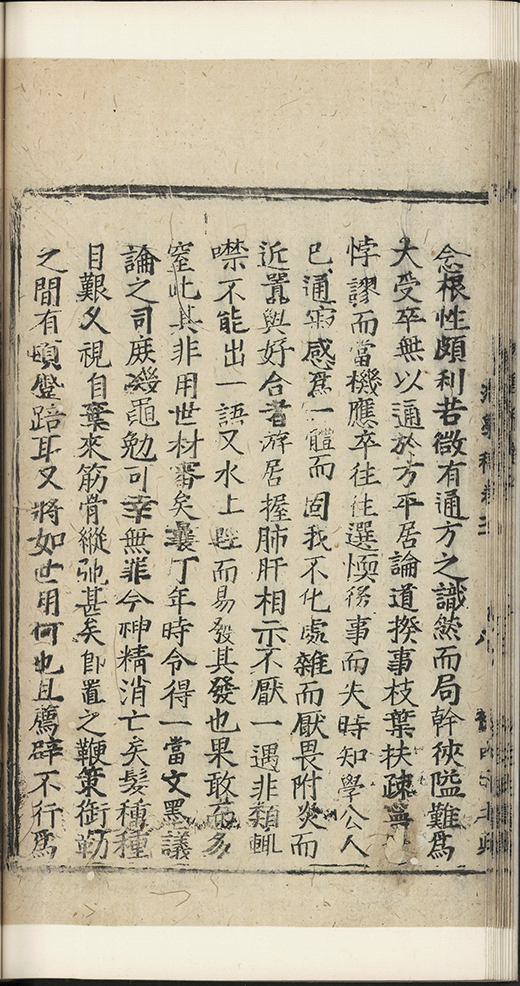 念根性頗利若微有通方之識然而局幹狹隘難爲
大受卒無以通於方平居論道揆事枝葉扶疎寧
悖謬而當機應卒往往選愞後事而失時知學公人
已通寂感爲一體而固我不化處雜而厭畏附炎而
近囂與好合者游居握肺肝相示不厭一遇非類輒
噤不能出一語又水上而易發其發也果敢而多
窒此其非用世材審矣曩丁年時令得一當文墨議
論之司庶幾黽勉可幸無罪今神精消亡矣髮種種
目艱久視自棄來筋骨縱弛甚矣卽置之鞭策銜勒
之間有頓躄踣耳又將如世用何也且薦辟不行爲